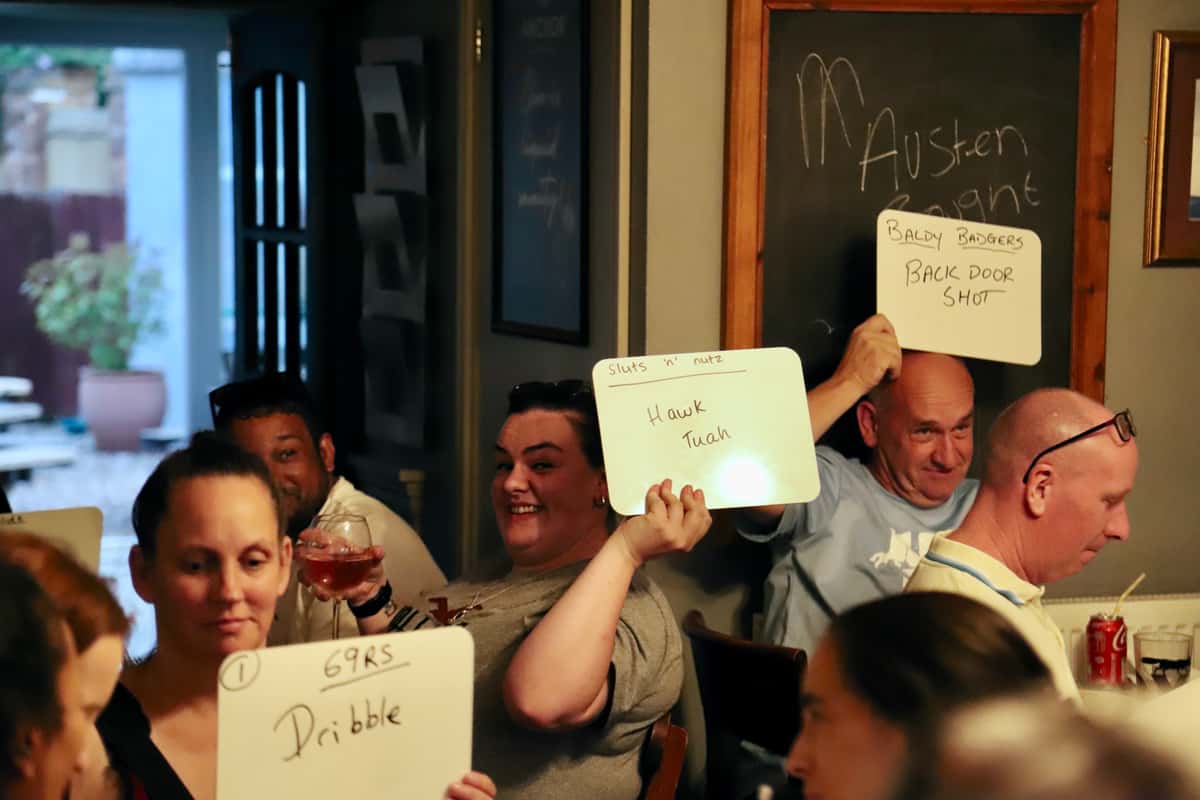 M
Austen
Knight
BALDY BADGERS
BACK DOOR
SHOT
Sluts 'n' nutz
Hawk
Tuah
1 69RS
Dribble